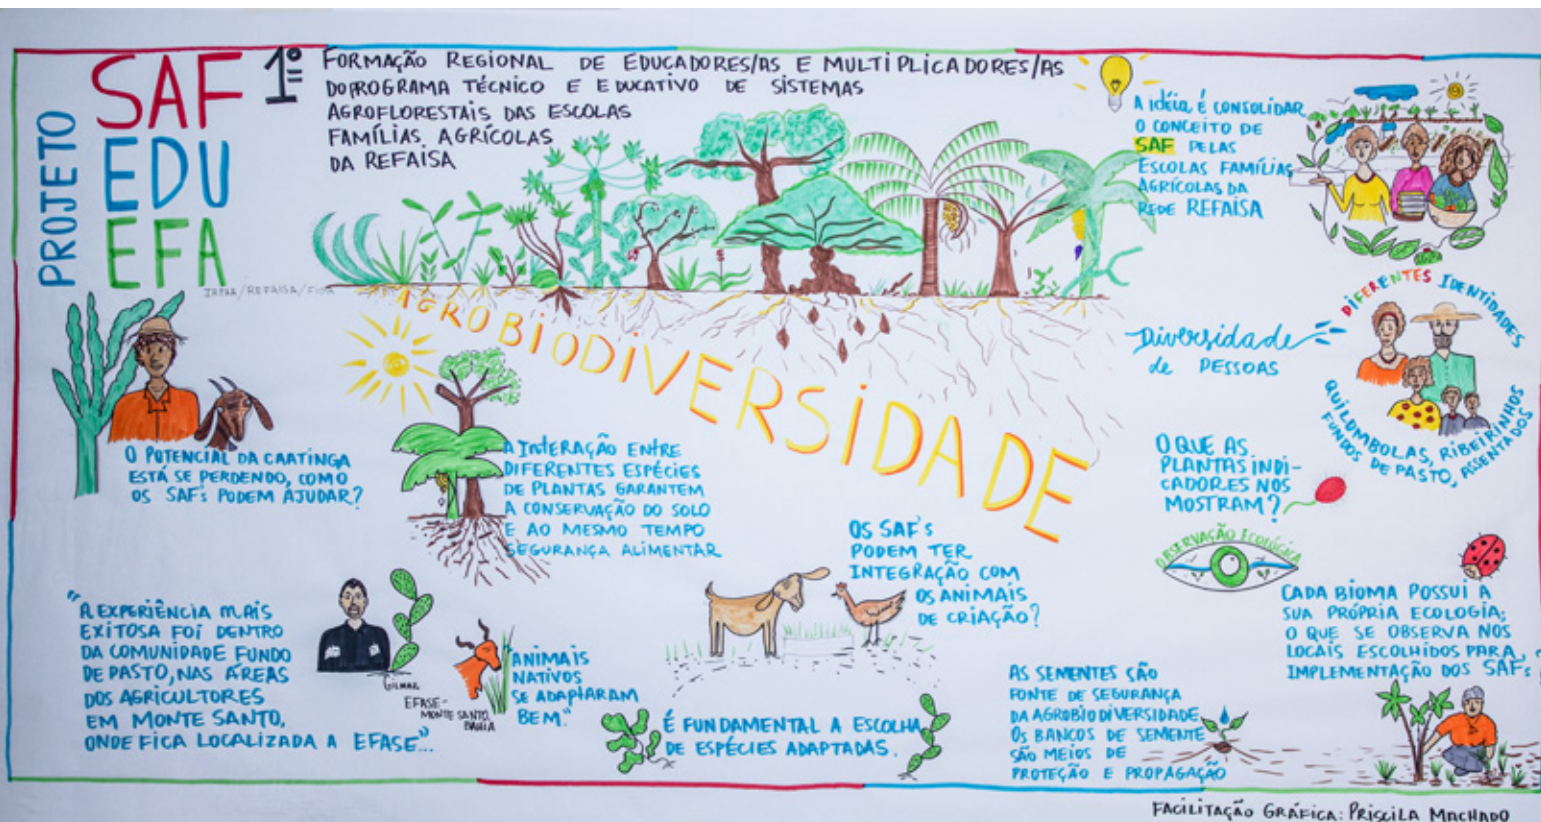 PROJETO
SAF
EDU
EFA
1º
FORMAÇÃO REGIONAL DE EDUCADORES/AS E MULTIPLICADORES/AS
DO PROGRAMA TÉCNICO E EDUCATIVO DE SISTEMAS
AGROFLORESTAIS DAS ESCOLAS
FAMÍLIAS AGRÍCOLAS
DA REFAISA
IRPAA/REFAISA/FIDA
A IDÉIA É CONSOLIDAR
O CONCEITO DE
SAF PELAS
ESCOLAS FAMÍLIAS
AGRÍCOLAS DA
REDE REFAISA
AGROBIODIVERSIDADE
Diversidade
de PESSOAS
DIFERENTES IDENTIDADES
QUILOMBOLAS, RIBEIRINHOS
FUNDOS DE PASTO, ASSENTADOS
O POTENCIAL DA CAATINGA
ESTÁ SE PERDENDO, COMO
OS SAF's PODEM AJUDAR?
A INTERAÇÃO ENTRE
DIFERENTES ESPÉCIES
DE PLANTAS GARANTEM
A CONSERVAÇÃO DO SOLO
E AO MESMO TEMPO
SEGURANÇA ALIMENTAR
O QUE AS
PLANTAS INDI-
CADORES NOS
MOSTRAM?
OBSERVAÇÃO ECOLÓGICA
OS SAF's
PODEM TER
INTEGRAÇÃO COM
OS ANIMAIS
DE CRIAÇÃO?
CADA BIOMA POSSUI A
SUA PRÓPRIA ECOLOGIA;
O QUE SE OBSERVA NOS
LOCAIS ESCOLHIDOS PARA
IMPLEMENTAÇÃO DOS SAFs?
"A EXPERIÊNCIA MAIS
EXITOSA FOI DENTRO
DA COMUNIDADE FUNDO
DE PASTO, NAS ÁREAS
DOS AGRICULTORES
EM MONTE SANTO,
ONDE FICA LOCALIZADA A EFASE"...
GILMAR
EFASE-
MONTE SANTO,
BAHIA
"ANIMAIS
NATIVOS
SE ADAPTARAM
BEM."
É FUNDAMENTAL A ESCOLHA
DE ESPÉCIES ADAPTADAS.
AS SEMENTES SÃO
FONTE DE SEGURANÇA
DA AGROBIODIVERSIDADE
OS BANCOS DE SEMENTE
SÃO MEIOS DE
PROTEÇÃO E PROPAGAÇÃO
FACILITAÇÃO GRÁFICA: PRISCILA MACHADO